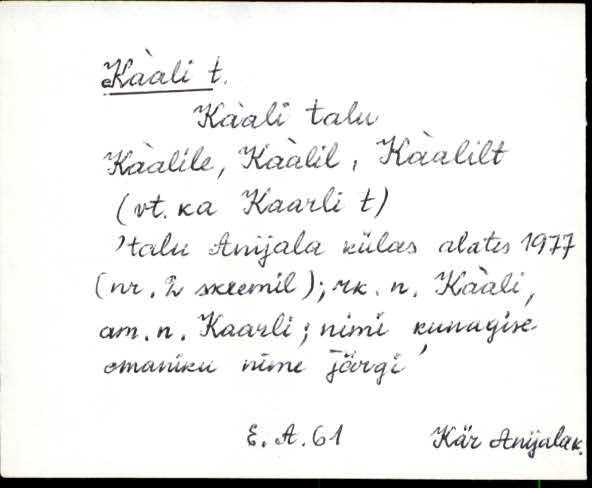 Kàali t.
Kàali talu
Kàalile, Kàalil, Kàalilt
(vt. ka Kaarli t)
'talu Anijala külas alates 1977
(nr. 2 skeemil); rk. n. Kàali,
am. n. Kaarli; nimi kunagise
omaniku nime järgi'
E. A. 61
Kär Anijala k.